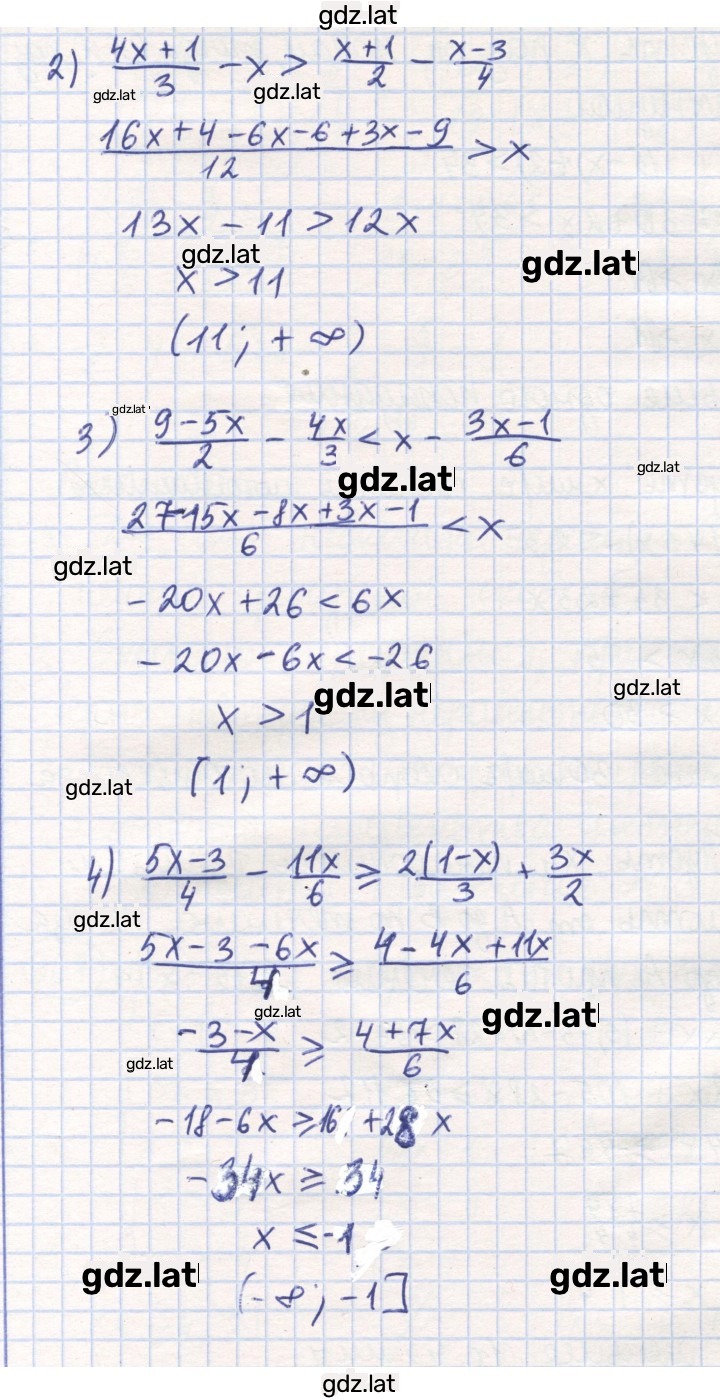 gdz.lat
2) (4x+1)/3 - x > (x+1)/2 - (x-3)/4
gdz.lat gdz.lat
(16x+4-6x-6+3x-9)/12 > x
13x - 11 > 12x
gdz.lat gdz.lat
x > 11
(11; + ∞)
gdz.lat
3) (9-5x)/2 - 4x/3 < x - (3x-1)/6
gdz.lat gdz.lat
(27-15x-8x+3x-1)/6 < x
gdz.lat
-20x+26 < 6x
-20x-6x < -26
gdz.lat gdz.lat
x > 1
gdz.lat (1; + ∞)
4) (5x-3)/4 - 11x/6 ≥ 2(1-x)/3 + 3x/2
gdz.lat
(5x-3-6x)/4 ≥ (4-4x+11x)/6
gdz.lat gdz.lat
(-3-x)/4 ≥ (4+7x)/6
gdz.lat
-18-6x ≥ 16+28x
-34x ≥ 34
x ≤ -1
gdz.lat gdz.lat
(-∞; -1]
gdz.lat